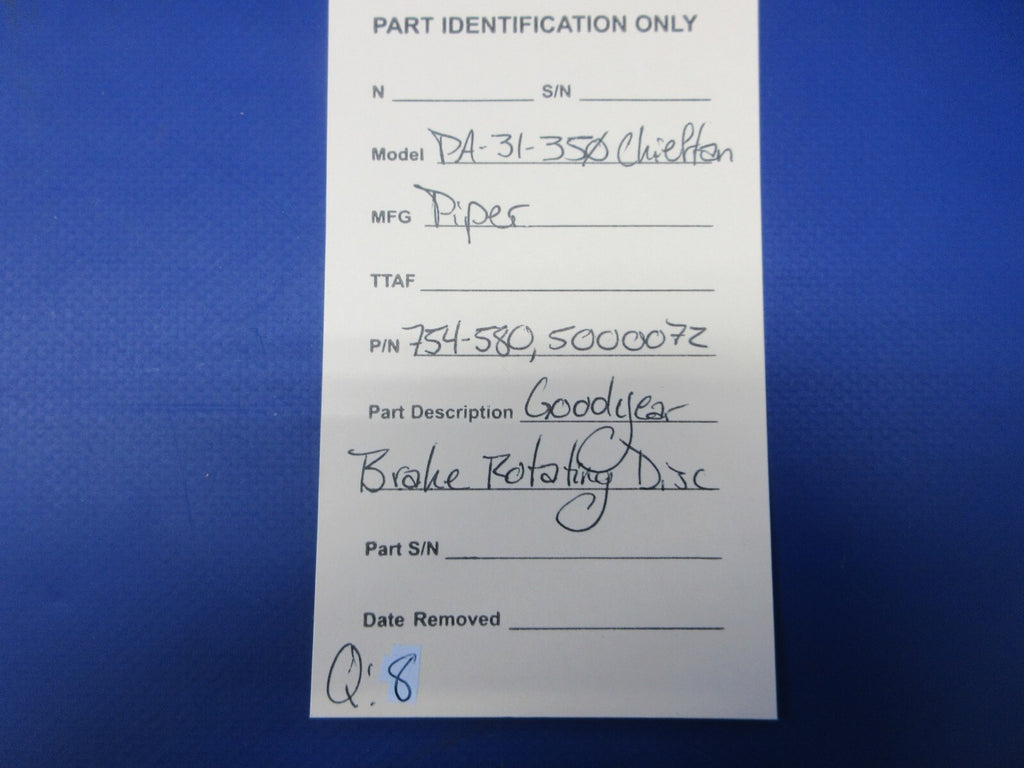 PART IDENTIFICATION ONLY
N S/N
Model PA-31-350 Chieftan
MFG Piper
TTAF
P/N 754-580, 5000072
Part Description Goodyear
Brake Rotating Disc
Part S/N
Date Removed
Q: 8